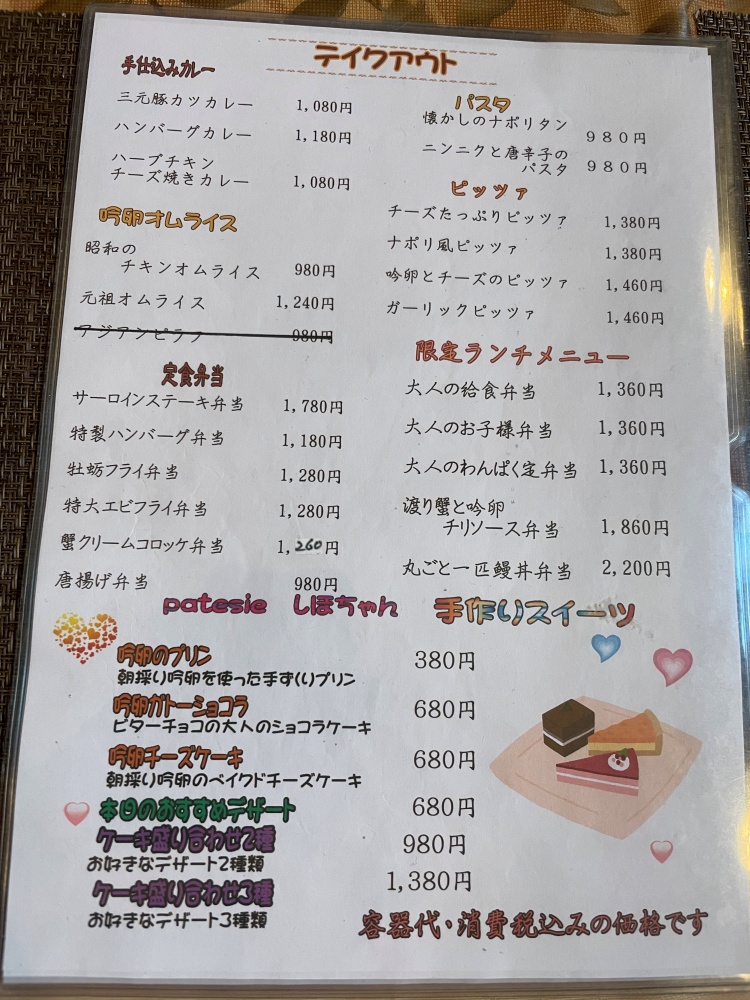 テイクアウト
手仕込みカレー
三元豚カツカレー 1,080円
ハンバーグカレー 1,180円
ハーブチキン
チーズ焼きカレー 1,080円
吟卵オムライス
昭和の
チキンオムライス 980円
元祖オムライス 1,240円
アジアンピラフ 980円
定食弁当
サーロインステーキ弁当 1,780円
特製ハンバーグ弁当 1,180円
牡蛎フライ弁当 1,280円
特大エビフライ弁当 1,280円
蟹クリームコロッケ弁当 1,260円
唐揚げ弁当 980円
パスタ
懐かしのナポリタン 980円
ニンニクと唐辛子の
パスタ 980円
ピッツァ
チーズたっぷりピッツァ 1,380円
ナポリ風ピッツァ 1,380円
吟卵とチーズのピッツァ 1,460円
ガーリックピッツァ 1,460円
限定ランチメニュー
大人の給食弁当 1,360円
大人のお子様弁当 1,360円
大人のわんぱく定弁当 1,360円
渡り蟹と吟卵
チリソース弁当 1,860円
丸ごと一匹鰻丼弁当 2,200円
patesie しほちゃん 手作りスイーツ
吟卵のプリン 380円
朝採り吟卵を使った手づくりプリン
吟卵ガトーショコラ 680円
ビターチョコの大人のショコラケーキ
吟卵チーズケーキ 680円
朝採り吟卵のベイクドチーズケーキ
本日のおすすめデザート 680円
ケーキ盛り合わせ2種 980円
お好きなデザート2種類
ケーキ盛り合わせ3種 1,380円
お好きなデザート3種類
容器代・消費税込みの価格です